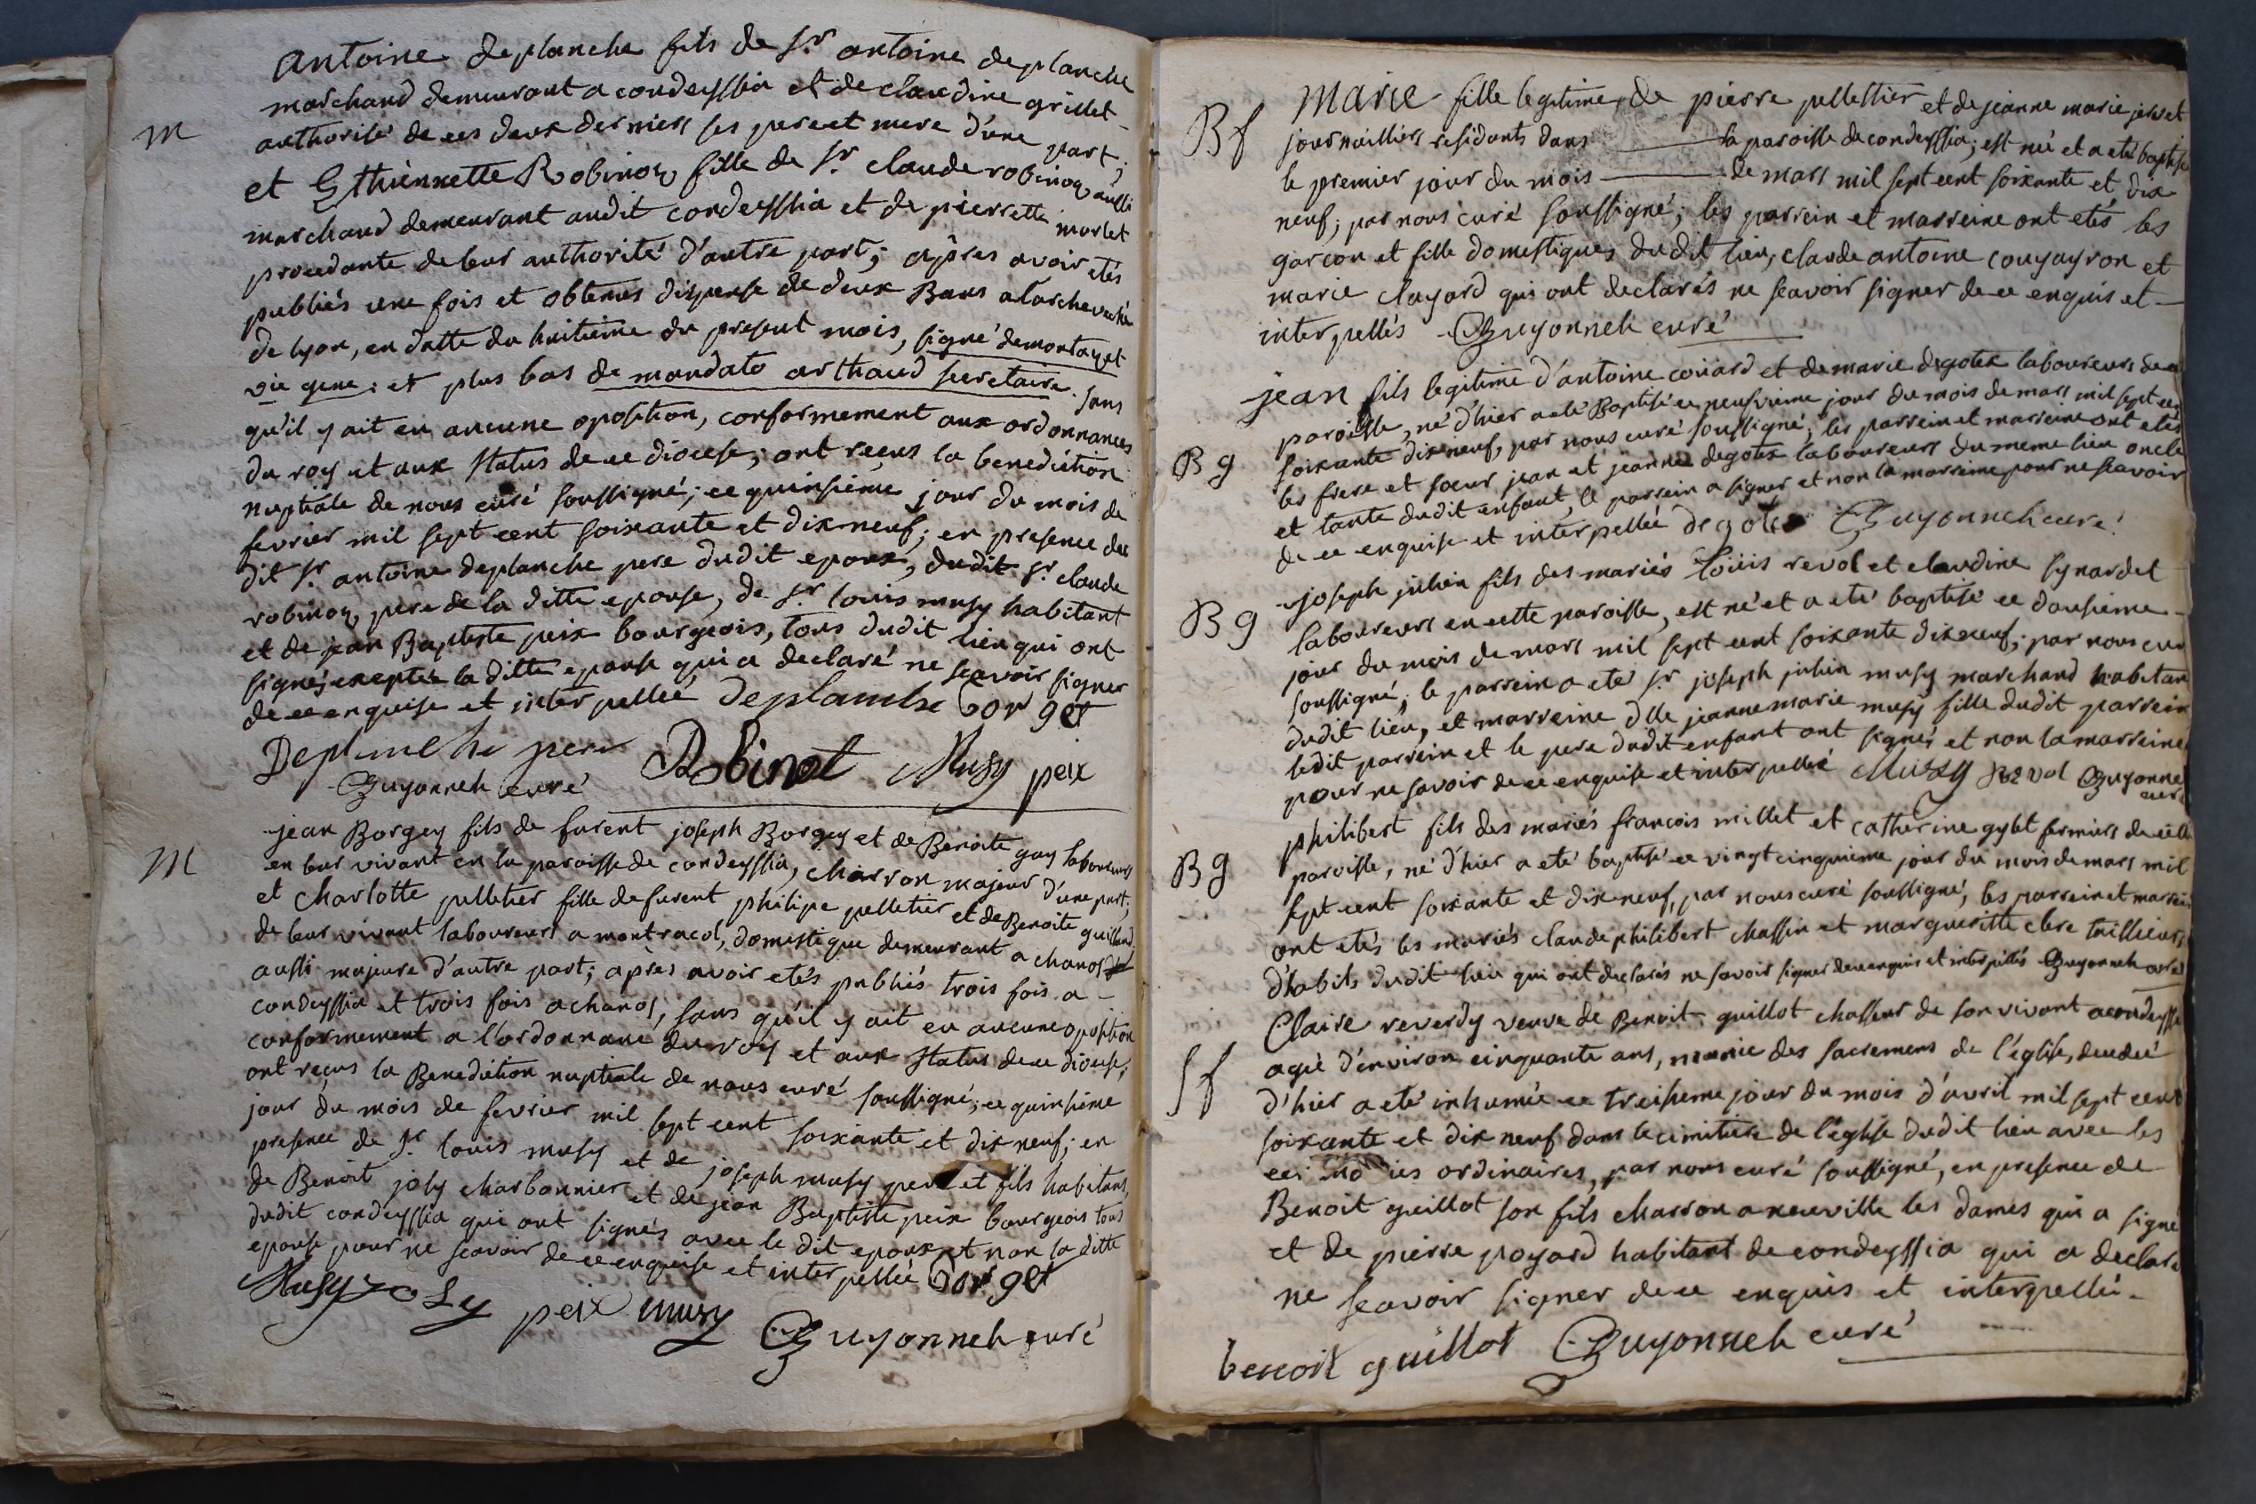 antoine deplanche fils de Sr. antoine deplanche
marchand demeurant a condeyssia et de claudine grillet
m
authorisé de ces deux derniers ses pere et mere d'une part;
et Ethiennette Robinot fille de Sr. claude robinot aussi
marchand demeurant audit condeyssia et de pierrette morlet
procedante de leur authorité d'autre part; après avoir etés
publiés une fois et obtenus dispense de deux Bans a larcheveché
de lyon, en datte du huitieme du present mois, signé demontazet
vic gene: et plus bas de mandato arthaud secretaire. sans
qu'il y ait eu aucune oposition, conformement aux ordonnances
du roy et aux status de ce diocese; ont reçus la benediction
nuptiale de nous curé soussigné; ce quinsieme jour du mois de
fevrier mil sept cent soixante et dix neuf; en presence du
dit Sr. antoine deplanche pere dudit epoux, dudit Sr. claude
robinot pere de la ditte epouse, de Sr. louis musy habitant
et de jean Baptiste peix bourgeois, tous dudit lieu qui ont
signés exceptée la ditte epouse qui a declaré ne scavoir signer
de ce enquise et interpellée deplanche Borget
Deplanche pere Robinot Musy peix
Guyonneh curé
jean Borgey fils de furent joseph Borgey et de Benoite gay laboureurs
M
en leur vivant en la paroisse de condeyssia, charron majeur d'une part;
et charlotte pelletier fille de furent philipe pelletier et de Benoite guilland
de leur vivant laboureurs a montracol, domestique demeurant a chanos
aussi majeure d'autre part; après avoir etés publiés trois fois a
condeyssia et trois fois a chanos, sans qu'il y ait eu aucune oposition
conformement a l'ordonnance du roy et aux status de ce diocese;
ont reçus la Benediction nuptiale de nous curé soussigné; ce quinsieme
jour du mois de fevrier mil sept cent soixante et dix neuf; en
presence de Sr. louis musy et de joseph musy pere et fils habitans,
de Benoit joly charbonnier et de jean Baptiste peix bourgeois tous
dudit condeyssia qui ont signés avec le dit epoux et non la ditte
epouse pour ne scavoir de ce enquise et interpellée Borget
Musy joly peix musy
Guyonneh curé
Marie fille legitime de pierre pelletier et de jeanne marie
Bf
journailliers residents dans la paroisse de condeyssia; est née et a eté baptisé
le premier jour du mois de mars mil sept cent soixante et dix
neuf; par nous curé soussigné; les parrein et marreine ont etés les
garcon et fille domestiques dudit lieu, claude antoine couyayron et
marie clayard qui ont declarés ne scavoir signer de ce enquis et
interpellés Guyonneh curé
jean fils legitime d'antoine couard et de marie degotex laboureurs de
paroisse, né d'hier a eté Baptisé ce neufvieme jour du mois de mars mil sept cent
Bg
soixante dix neuf, par nous curé soussigné; les parrein et marreine ont etés
les frere et soeur jean et jeanne degotex laboureurs du meme lieu oncle
et tante dudit enfant, le parrein a signer et non la marreine pour ne scavoir
de ce enquise et interpellée degotex Guyonneh curé
joseph julien fils des mariés louis revol et claudine synardet
Bg
laboureurs en cette paroisse, est né et a eté baptisé ce dousieme
jour du mois de mars mil sept cent soixante dixneuf; par nous cur
soussigné; le parrein a eté Sr. joseph julien musy marchand habitan
dudit lieu, et marreine dlle jeanne marie musy fille dudit parrein
ledit parrein et le pere dudit enfant ont signés et non la marreine
pour ne savoir de ce enquise et interpellée Musy Revol Guyonne
curé
philibert fils des mariés francois millet et catherine gylet fermiers de cette
Bg
paroisse, né d'hier a eté baptisé ce vingt cinquieme jour du mois de mars mil
sept cent soixante et dix neuf, par nous curé soussigné, les parrein et marrei
ont etés les mariés claude philibert chassin et margueritte clere taillieurs
d'habits dudit lieu qui ont declarés ne savoir signer de ce enquis et interpellés Guyonneh curé
Claire reverdy veuve de Benoit guillot chasseur de son vivant a condeyssi
Sf
agée d'environ cinquante ans, munie des sacremens de l'eglise, decedeé
d'hier a eté inhumée ce treisieme jour du mois d'avril mil sept cent
soixante et dix neuf dans le cimitiere de l'eglise dudit lieu avec les
ceremonies ordinaires, par nous curé soussigné, en presence de
Benoit guillot son fils charron a neuville les dames qui a signé
et de pierre poyard habitant de condeyssia qui a declaré
ne scavoir signer de ce enquis et interpellé.
benoit guillot Guyonneh curé